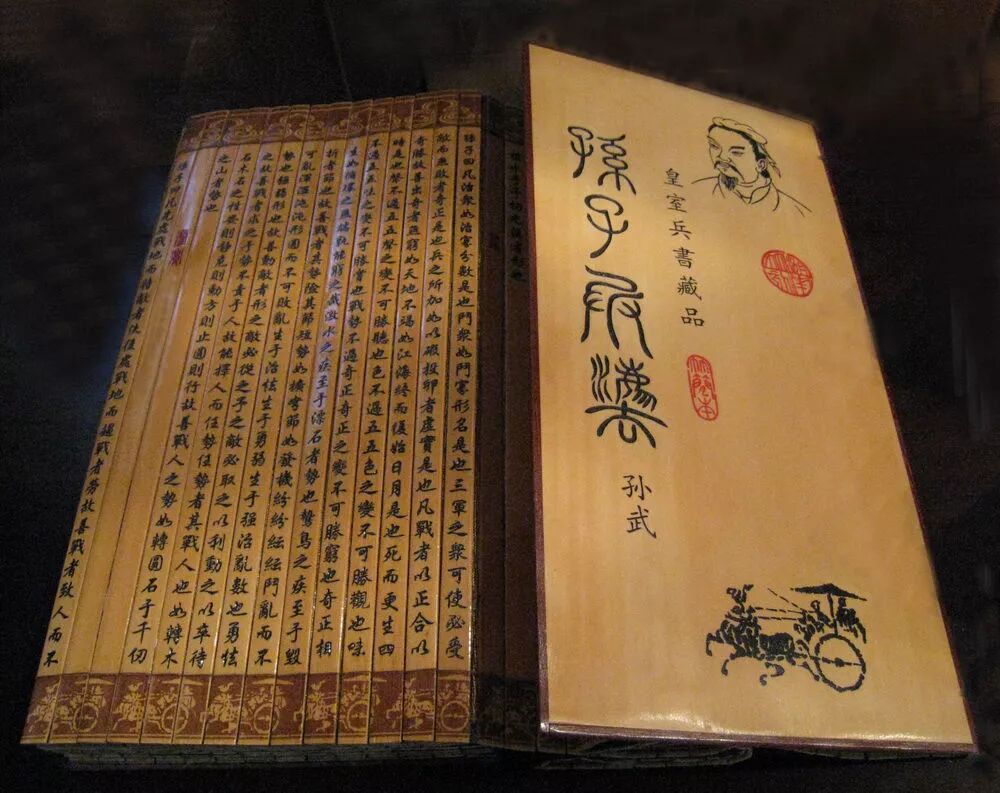 孫子兵法
皇室兵書藏品
孙武
竹簡本
孫子曰凡治衆如治寡分數是也鬥衆如鬥寡形名是也三軍之衆可使必受
敵而無敗者奇正是也兵之所加如以碬投卵者虛實是也凡戰者以正合以
奇勝故善出奇者無窮如天地不竭如江海終而復始日月是也死而更生四
時是也聲不過五五聲之變不可勝聽也色不過五五色之變不可勝觀也味
不過五五味之變不可勝嘗也戰勢不過奇正奇正之變不可勝窮也奇正相
生如循環之無端孰能窮之哉激水之疾至于漂石者勢也鷙鳥之疾至于毀
折者節也故善戰者其勢險其節短勢如擴弩節如發機紛紛紜紜鬥亂而不
可亂渾渾沌沌形圓而不可敗亂生于治怯生于勇弱生于强治亂數也勇怯
勢也强弱形也故善動敵者形之敵必從之予之敵必取之以利動之以卒待
之故善戰者求之于勢不責于人故能擇人而任勢任勢者其戰人也如轉木
石木石之性安則靜危則動方則止圓則行故善戰人之勢如轉圓石于千仞
之山者勢也
虛實
孫子曰凡先處戰地而待敵者佚後處戰地而趨戰者勞故善戰者致人而不